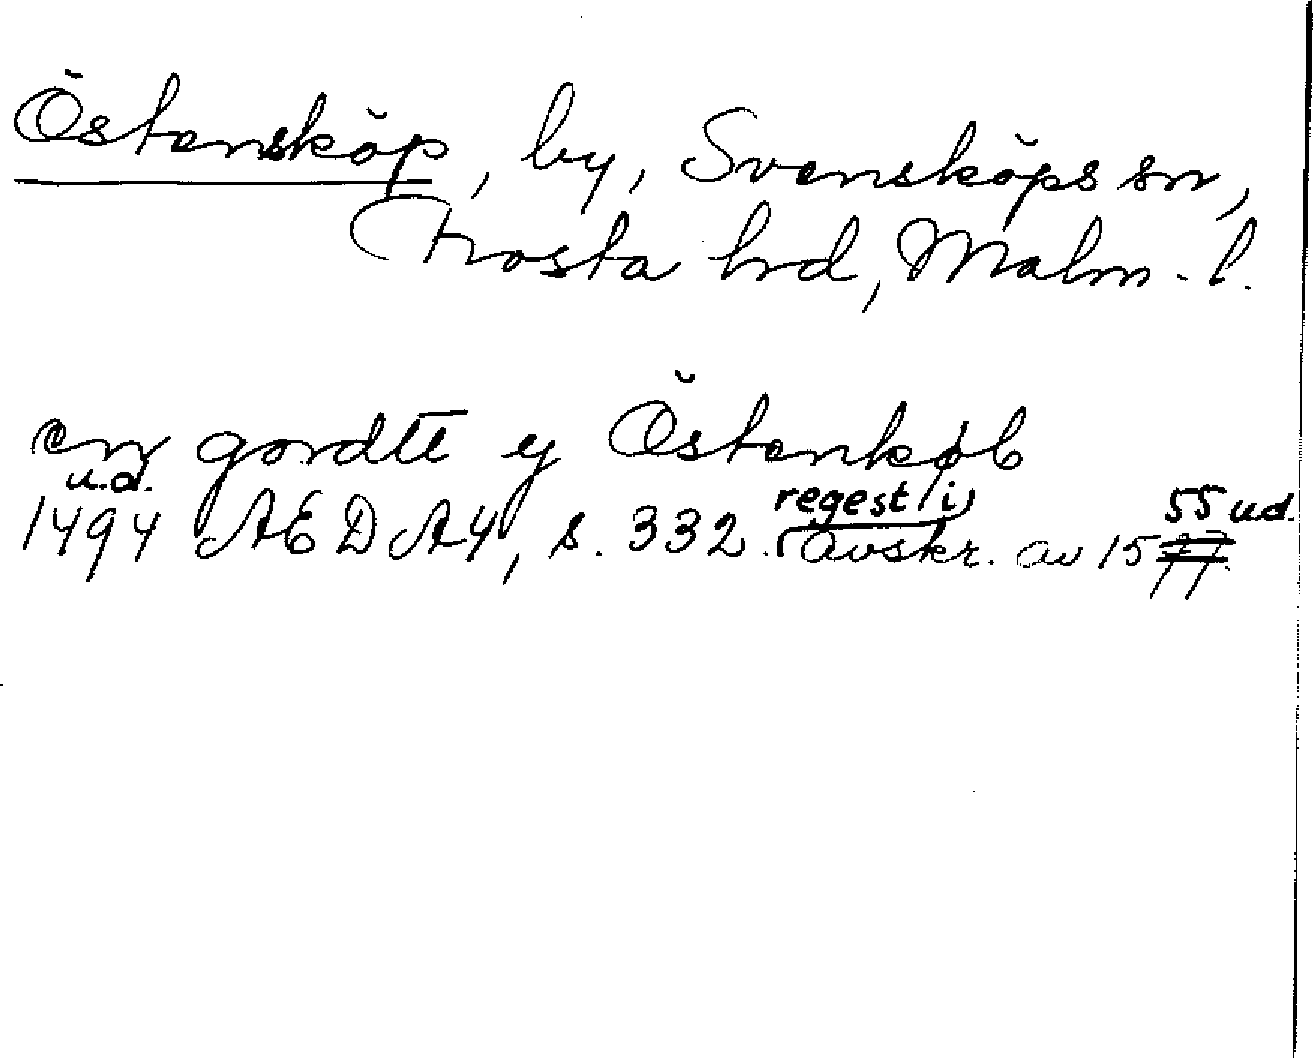 Östensköp, by, Svensköps sn,
Frosta hrd, Malm. l.
en gordtt y Östenkøb
u.d.
1494 AEDA4, s. 332. regest i avskr. av 1555 u.d.